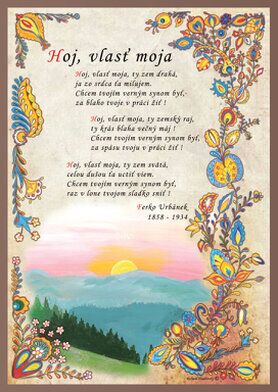 Hoj, vlasť moja
Hoj, vlasť moja, ty zem drahá,
ja zo srdca ťa milujem.
Chcem tvojim verným synom byť,
za blaho tvoje v práci žiť !
Hoj, vlasť moja, ty zemský raj,
ty krás blaha večný máj !
Chcem tvojim verným synom byť,
za spásu tvoju v práci žiť !
Hoj, vlasť moja, ty zem svätá,
celou dušou ťa uctiť viem.
Chcem tvojim verným synom byť,
raz v lone tvojom sladko sniť !
Ferko Urbánek
1858 - 1934